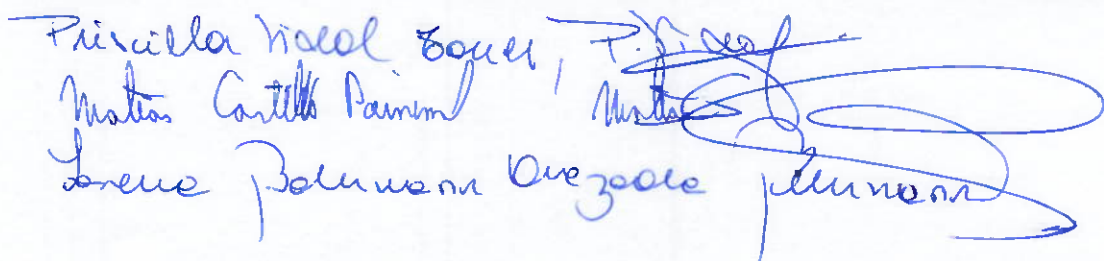 Priscilla Vidal Torres, P. Vidal
Matias Castillo Painemal Matias
Lorena Bahumann Quezada